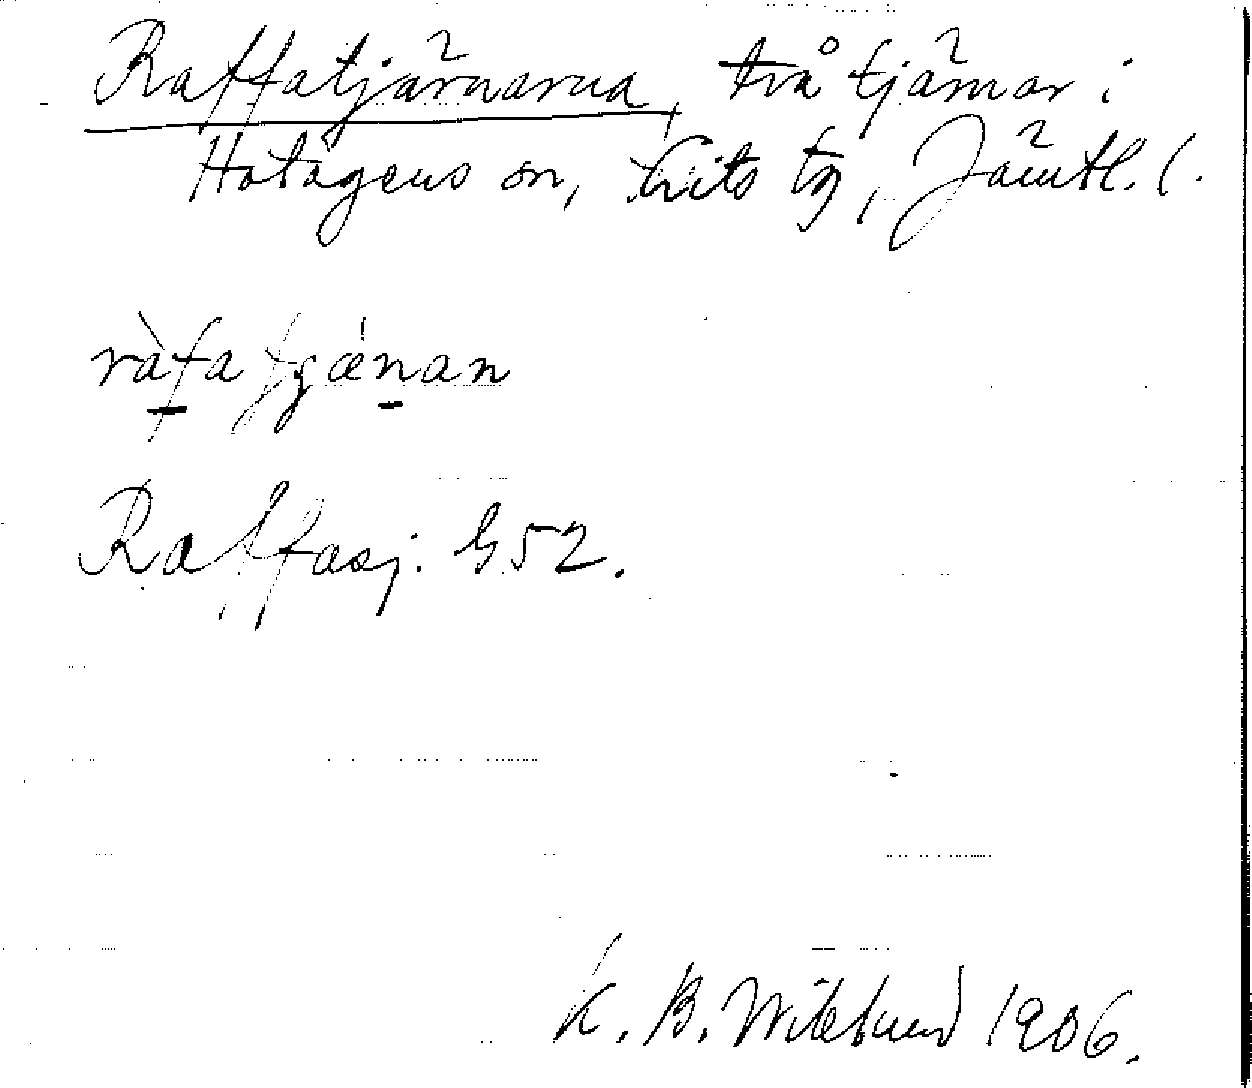 Raffatjärnarna, två tjärnar i
Hotagens sn, Lits tg, Jämtl. l.
ràfa tjǽnan
Raffasj. G52.
K. B. Wiklund 1906.